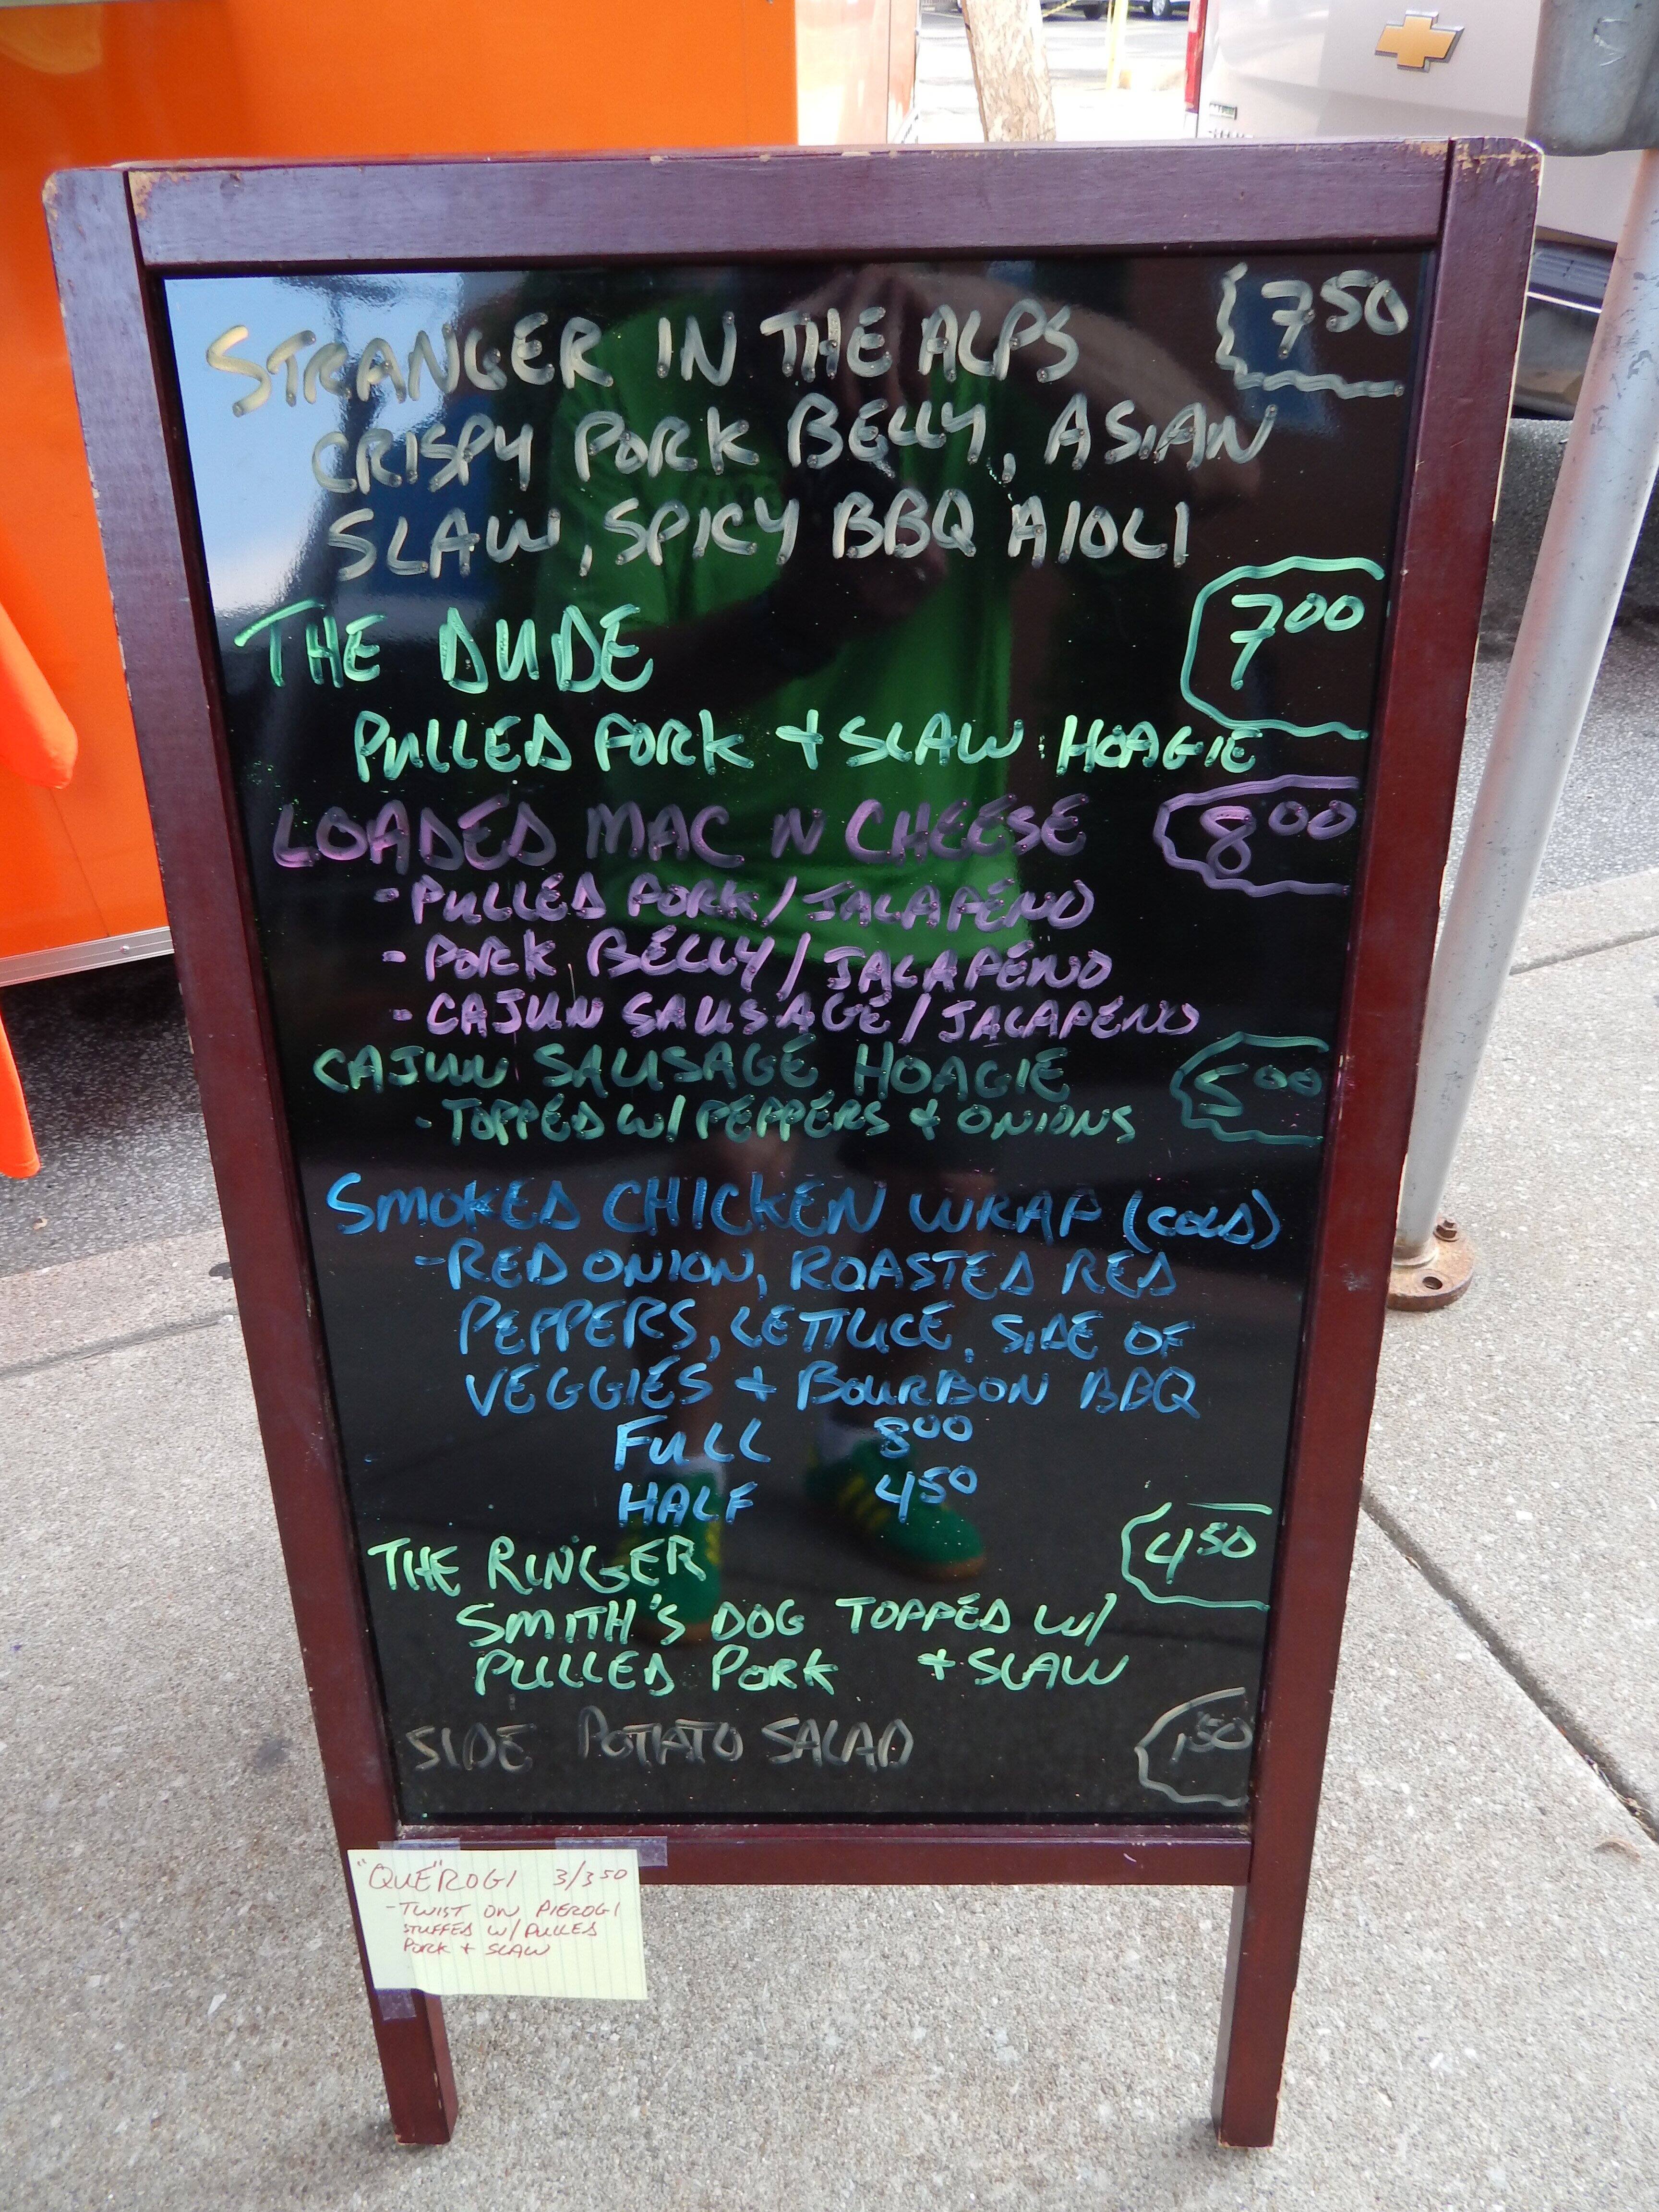 STRANGER IN THE ALPS 7 50
CRISPY PORK BELLY, ASIAN
SLAW, SPICY BBQ AIOLI
THE DUDE 7 00
PULLED PORK + SLAW HOAGIE
LOADED MAC N CHEESE 8 00
- PULLED PORK / JALAPENO
- PORK BELLY / JALAPENO
- CAJUN SAUSAGE / JALAPENO
CAJUN SAUSAGE HOAGIE 5 00
- TOPPED W/ PEPPERS + ONIONS
SMOKED CHICKEN WRAP (COLD)
- RED ONION, ROASTED RED
PEPPERS, LETTUCE, SIDE OF
VEGGIES + BOURBON BBQ
FULL 8 00
HALF 4 50
THE RINGER 4 50
SMITH'S DOG TOPPED W/
PULLED PORK + SLAW
SIDE POTATO SALAD 1.50
"QUE"ROGI 3/3 50
- TWIST ON PIEROGI
STUFFED W/ PULLED
PORK + SLAW